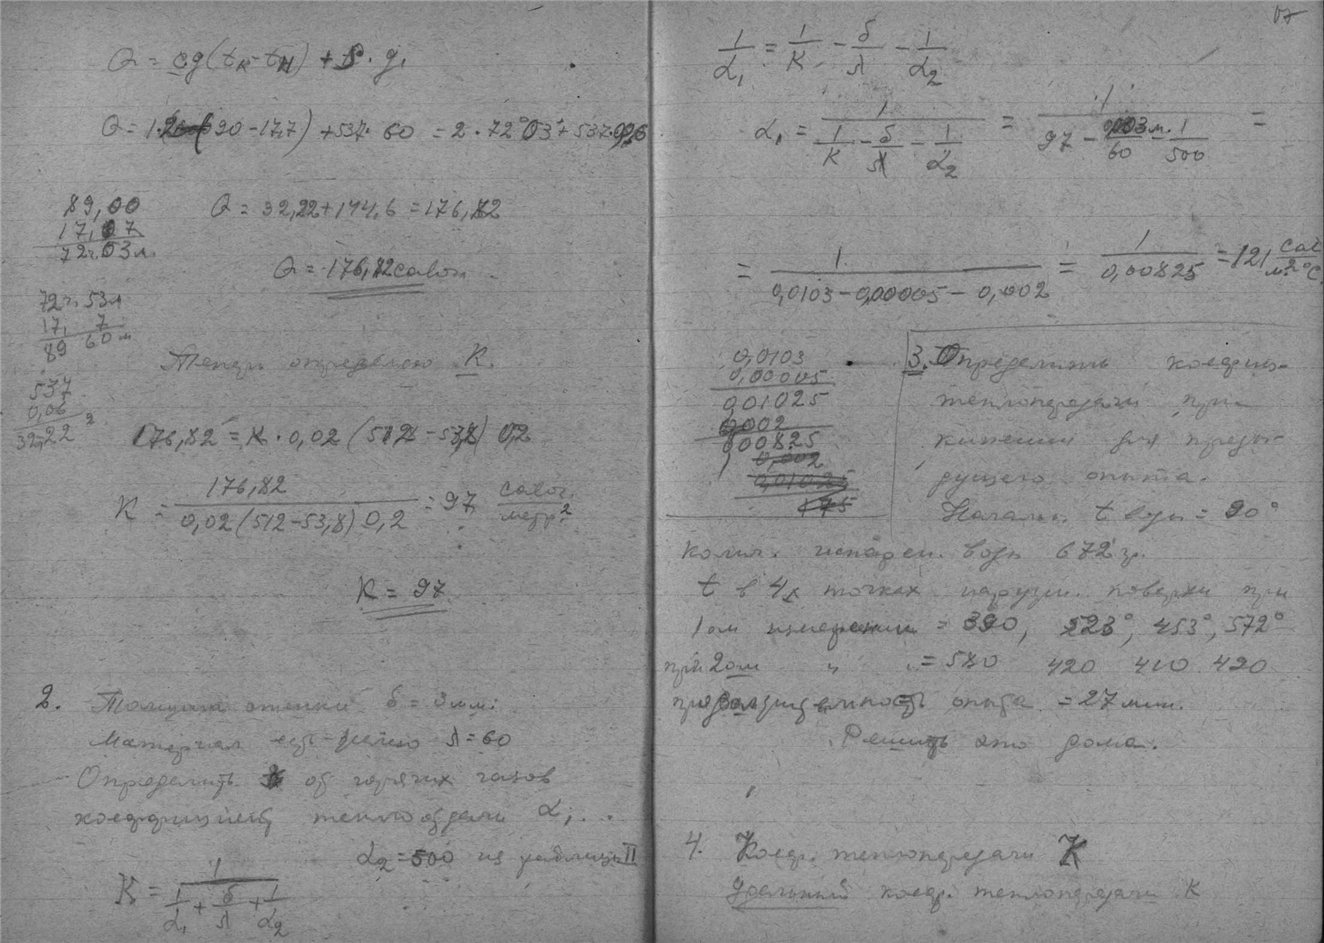 Q = cg(tк - tн) + ρ · g₁
20 - 17,7) + 537 · 60 = 2 · 72°03 + 537 ·
89,00
17,07
72,03
Q = 32,22 + 144,6 = 176,82
Q = 176,82 calor.
72 53
17, 7
89 60
Теперь определяю K.
537
0,06
32,22
176,82 = K · 0,02 (512 - 53,8) 0,2
K = 176,82 / 0,02 (512 - 53,8) 0,2 = 97 calor. / метр.²
K = 97
2. Толщина стенки δ = 3 мм.
Материал λ = 60
Определить от горячих газов
коеффициент теплоотдачи α₁ . .
α₂ = 500 из таблицы II
K = 1 / (1/α₁ + δ/λ + 1/α₂)
1/α₁ = 1/K - δ/λ - 1/α₂
α₁ = 1 / (1/K - δ/λ - 1/α₂) = 1 / (97 - 0,003 м./60 - 1/500) =
= 1 / (0,0103 - 0,00005 - 0,002) = 1 / 0,00825 = 121 cal / м² °C
0,0103
0,00005
0,01025
0,002
0,00825
0,002
0,01025
175
3. Определить коефиц-
теплопередачи при
кипении для преды-
дущего опыта.
Начальн. t воды = 90°
колич. испарен. воды 672 гр.
t в 4х точках наружн. поверхн при
1ом измерении = 390, 523°, 453°, 572°
при 2ом " = 580 420 410 420
продолжительность опыта = 27 мин.
Решить это дома.
4. Коеф. теплопередачи K
Удельный коеф. теплопередачи K